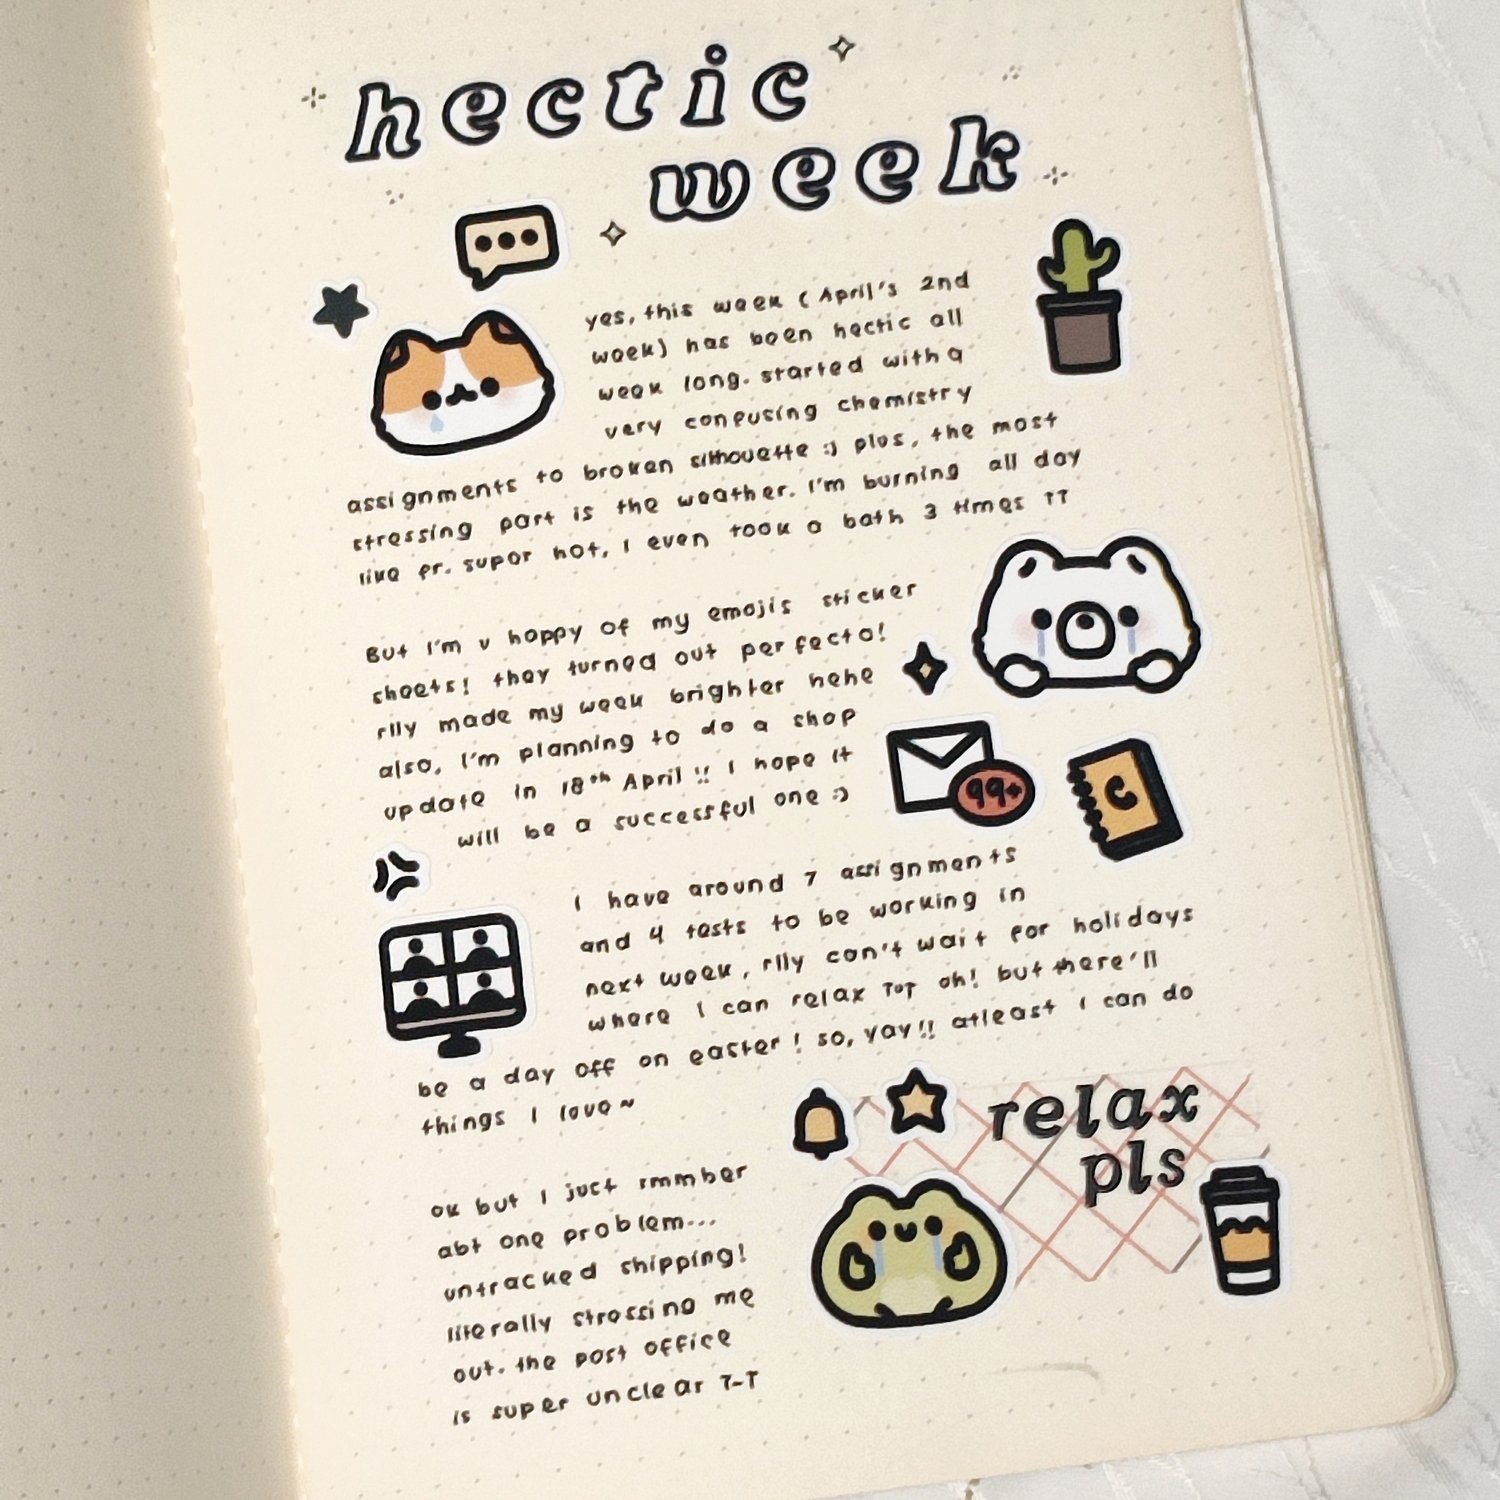 hectic
week
yes, this week (April's 2nd
week) has been hectic all
week long. started with a
very confusing chemistry
assignments to broken silhouette :) plus, the most
stressing part is the weather. I'm burning all day
like fr. super hot, I even took a bath 3 times TT
But I'm v happy of my emojis sticker
sheets! they turned out perfecto!
rlly made my week brighter hehe
also, I'm planning to do a shop
update in 18th April!! I hope it
will be a successful one :)
99+
C
I have around 7 assignments
and 4 tests to be working in
next week, rlly can't wait for holidays
where I can relax TOT oh! but there'll
be a day off on easter! so, yay!! atleast I can do
things I love~
relax
pls
ok but I just rmmber
abt one problem...
untracked shipping!
literally stressing me
out. the post office
is super unclear T-T